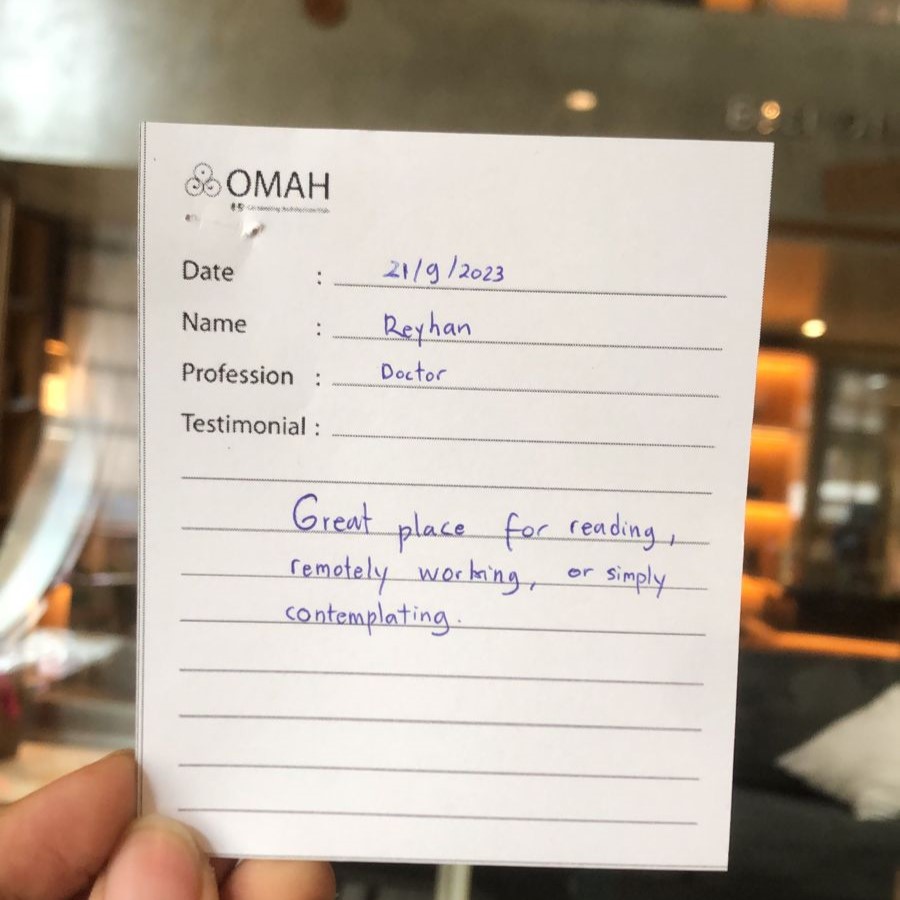 OMAH
Date : 21/9/2023
Name : Reyhan
Profession : Doctor
Testimonial :
Great place for reading,
remotely working, or simply
contemplating.